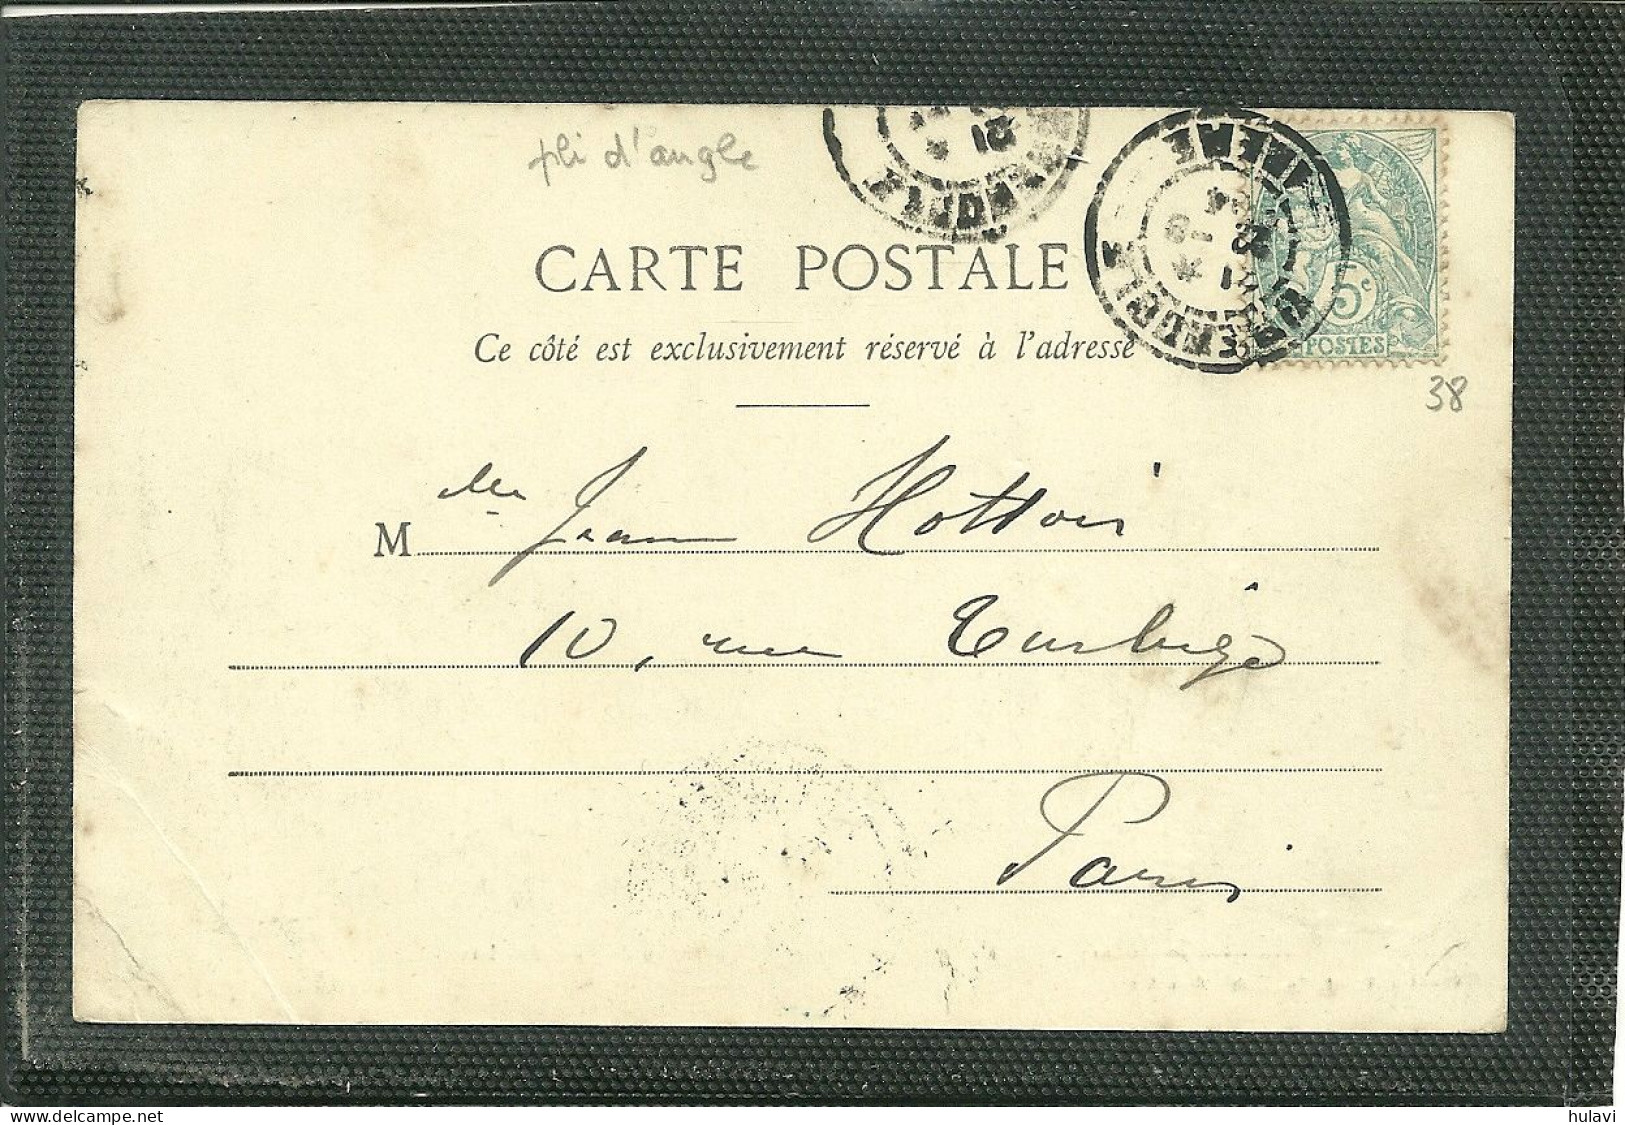 pli d'angle
CARTE POSTALE
Ce côté est exclusivement réservé à l'adresse
5c
POSTES
38
Mlle Jeanne Hottois
10, rue Turbigo
Paris
hulavi
www.delcampe.net